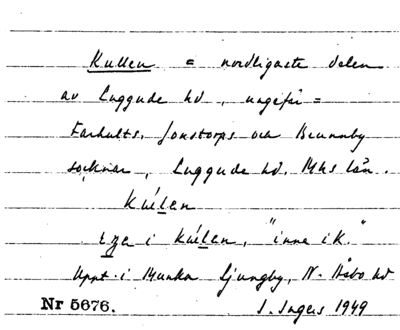 Kullen = nordligaste delen
av Luggude hd, ungefär =
Farhults, Jonstorps och Brunnby
socknar, Luggude hd. Mhs län.
Kúlen
i Kúlen, "inne i K."
Uppt. i Munka Ljungby, N. Åsbo hd
Nr 5676. I. Ingers 1949